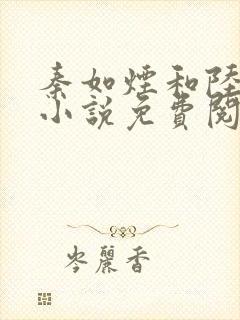 秦如煙和陸
小說免費閱
岑麗香